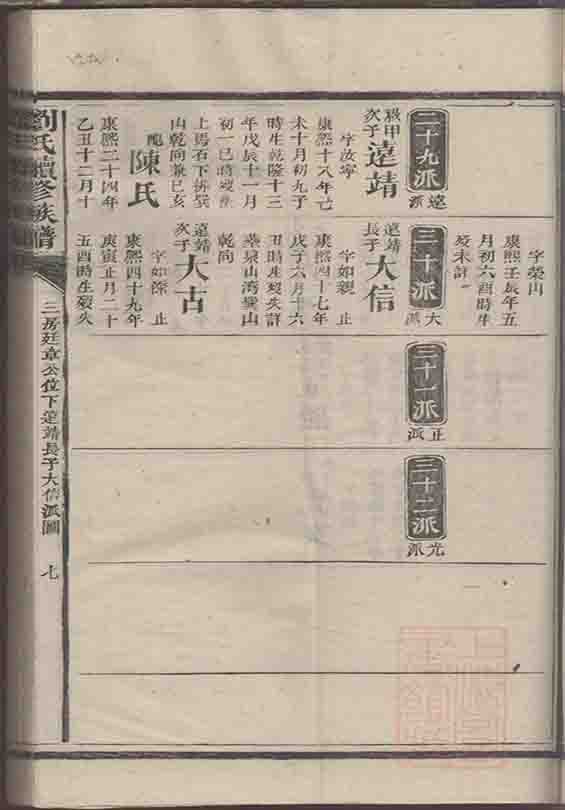 字榮山
康熙壬辰年五
月初六酉時生
歿未詳
二十九派
遠派
次子遠靖
字汝寧
康熙十八年己
未十月初九子
時生乾隆十三
年戊辰十一月
初一巳時歿
上馬石下
山乾向兼巳亥
配陳氏
康熙二十四年
乙丑十二月十
三十派
大派
遠靖長子大信
字如親 止
康熙四十七年
戊子六月十六
丑時生歿失詳
葬泉山灣
乾向
遠靖次子大古
字如 止
康熙四十九年
庚寅正月二十
五酉時生歿失
三十一派
正派
三十二派
光派
劉氏續修族譜
三房廷章公位下遠靖長子大信派圖
七